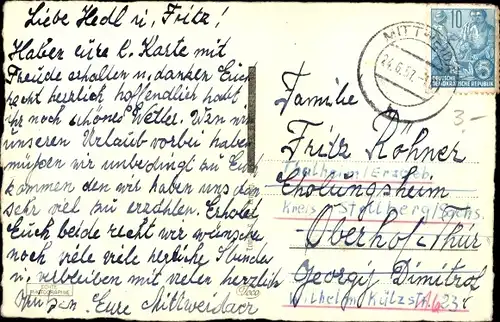 Liebe Hedl u, Fritz!
Haben eure l. Karte mit
Freude erhalten u, danken Euch
recht herzlich hoffendlich habt
ihr noch schönes Wetter. Wen wir
unseren Urlaub vorbei haben
müssen wir unbedingt zu Euch
kommen den wir haben uns dan
sehr viel zu erzählen. Erholet
Euch beide recht wir wünschen
noch viele viele herliche Stunden
u, verbleiben mit vielen herzlich
Eure Mittweidaer
MITTWEIDA
10
DEUTSCHE
DEMOKRATISCHE REPUBLIK
3-
Familie
Fritz Röhner
Thalheim/Erzgeb.
Erholungsheim
Kreis Stollberg/Sachs.
Oberhof-Thür
Georgij Dimitrof
Wilhelm Külzstr. 23